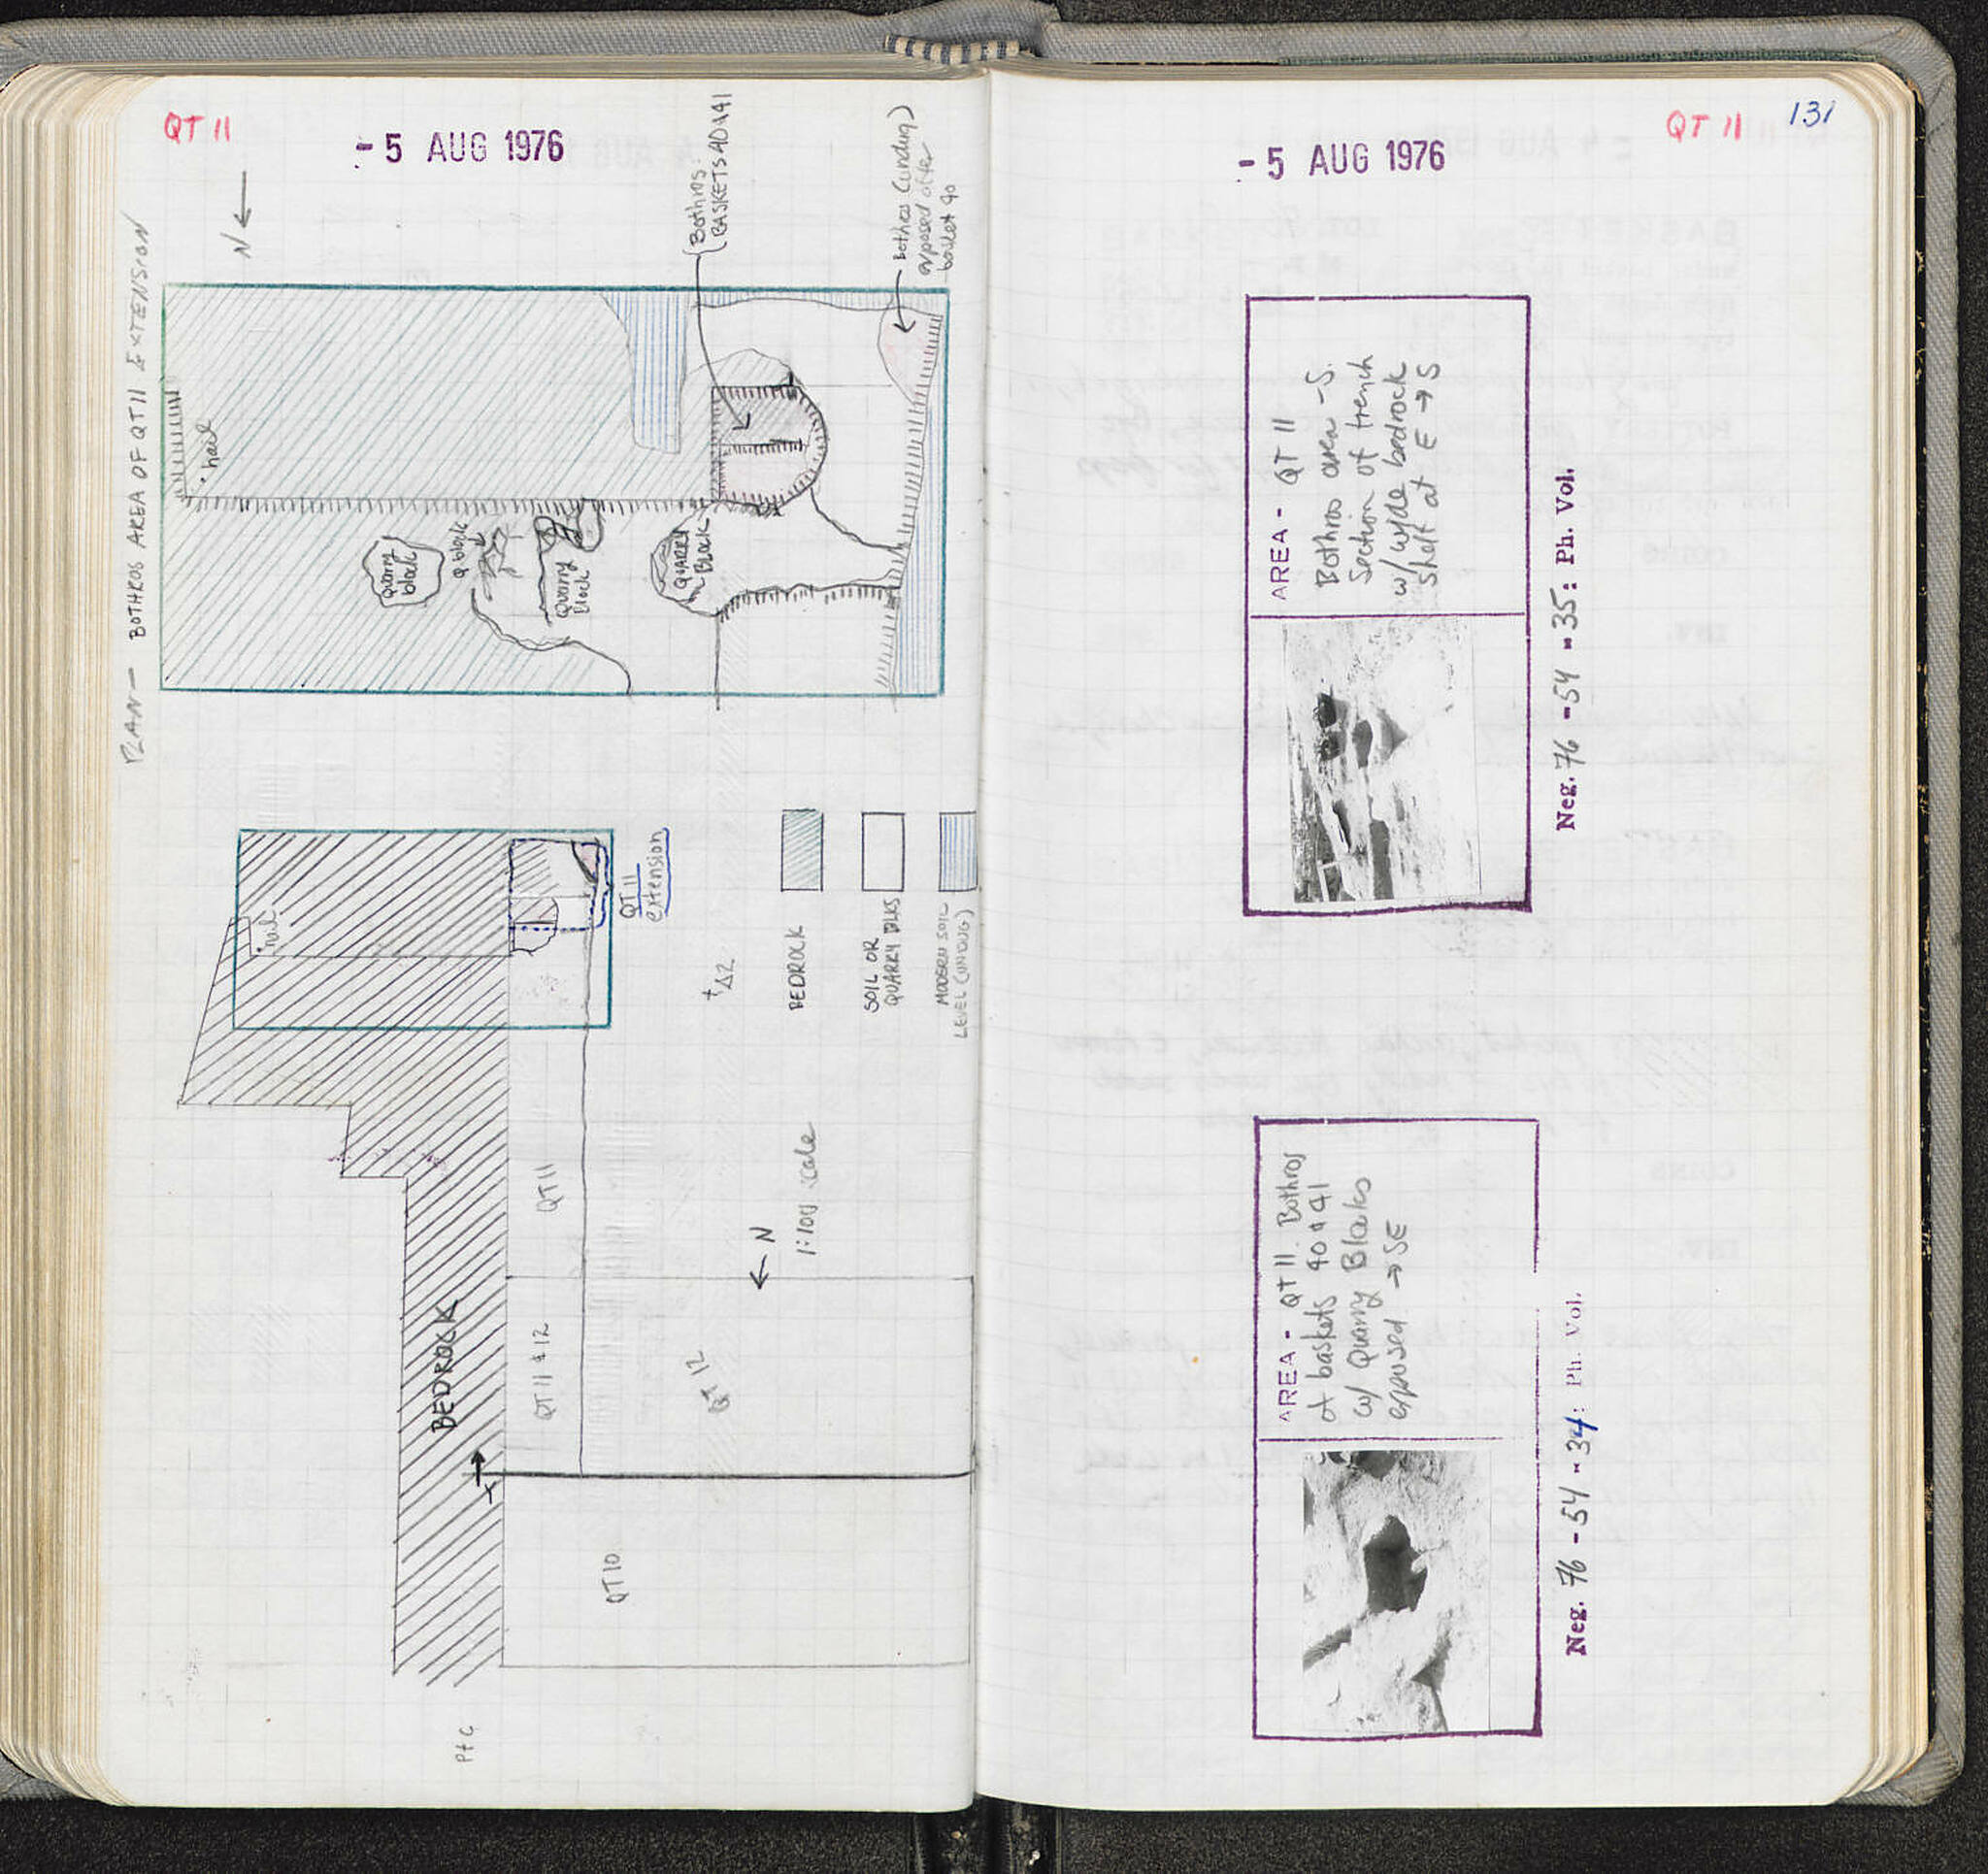 QT 11
- 5 AUG 1976
PLAN — BOTHROS AREA OF QT 11 EXTENSION
N
Bothros
BASKETS 40 & 41
Bothros (undug)
exposed after
basket 40
nail
Quarry
block
Q block
Quarry
block
QUARRY
BLOCK
nail
QT 11
extension
Δ2
BEDROCK
SOIL OR
QUARRY BLKS
MODERN SOIL
LEVEL (UNDUG)
QT 11
N
1:100 scale
BEDROCK
QT 11 & 12
QT 12
QT 10
Pt C
QT 11
131
- 5 AUG 1976
AREA - QT 11
Bothros area - S.
Section of trench
w/ wide bedrock
shelf at E → S
Neg. 76 - 54 - 35: Ph. Vol.
AREA - QT 11 Bothros
at baskets 40 & 41
w/ Quarry Blocks
exposed → SE
Neg. 76 - 54 - 34: Ph. Vol.